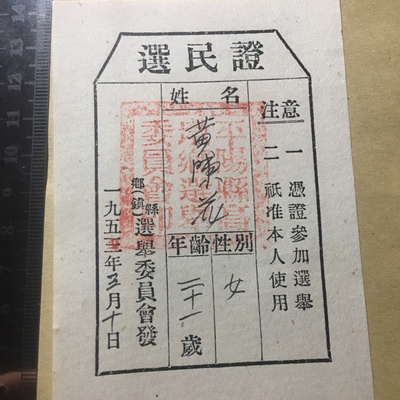 選民證
注意
一 憑證參加選舉
二 祇准本人使用
姓名
黃陳花
性別
女
年齡
二十一歲
縣
鄉(鎮)
選舉委員會發
一九五三年五月十日
平陽縣
鄉選舉
委員會